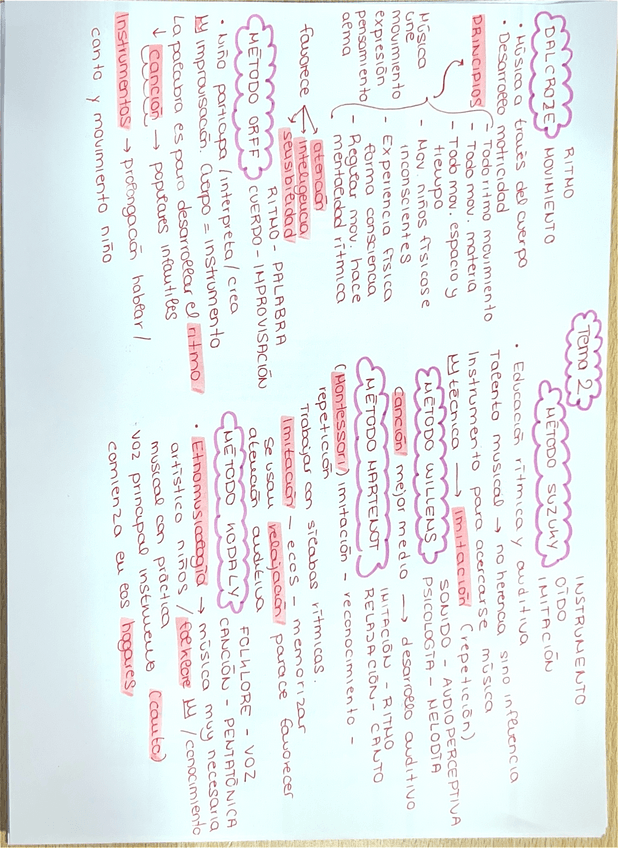 Tema 2
DALCROZE
RITMO
MOVIMIENTO
• Música a través del cuerpo
• Desarrollo motricidad
PRINCIPIOS
- Todo ritmo movimiento
- Todo mov. materia
- Todo mov. espacio y
tiempo
- Mov. niños físicos e
inconscientes
- Experiencia física
forma consciencia
- Regular mov. hace
mentalidad rítmica
Música
une
movimiento
expresión
pensamiento
alma
favorece
atención
inteligencia
sensibilidad
MÉTODO ORFF
RITMO - PALABRA
CUERDO - IMPROVISACIÓN
• Niño participa / interpreta / crea
improvisación. Cuerpo = instrumento
La palabra es para desarrollar el ritmo /
↓ canción → populares infantiles
Instrumentos → prolongación hablar /
canto y movimiento niño
MÉTODO SUZUKY
INSTRUMENTO
OÍDO
IMITACIÓN
• Educación rítmica y auditiva
Talento musical → no herencia sino influencia
Instrumento para acercarse música
técnica → imitación (repetición)
MÉTODO WILLENS
SONIDO - AUDIOPERCEPTIVA
PSICOLOGÍA - MELODÍA
canción mejor medio → desarrollo auditivo
MÉTODO MARTENOT
IMITACIÓN - RITMO
RELAJACIÓN - CANTO
(Montessori) imitación - reconocimiento -
repetición
Trabajar con sílabas rítmicas.
Imitación - ecos - memorizar
Se usan relajación para favorecer
atención auditiva
MÉTODO KODALY
FOLKLORE - VOZ
CANCIÓN - PENTATÓNICA
• Etnomusicología → música muy necesaria
artístico niños / folklore / conocimiento
musical con práctica
· voz principal instrumento (canto)
comienza en los hogares